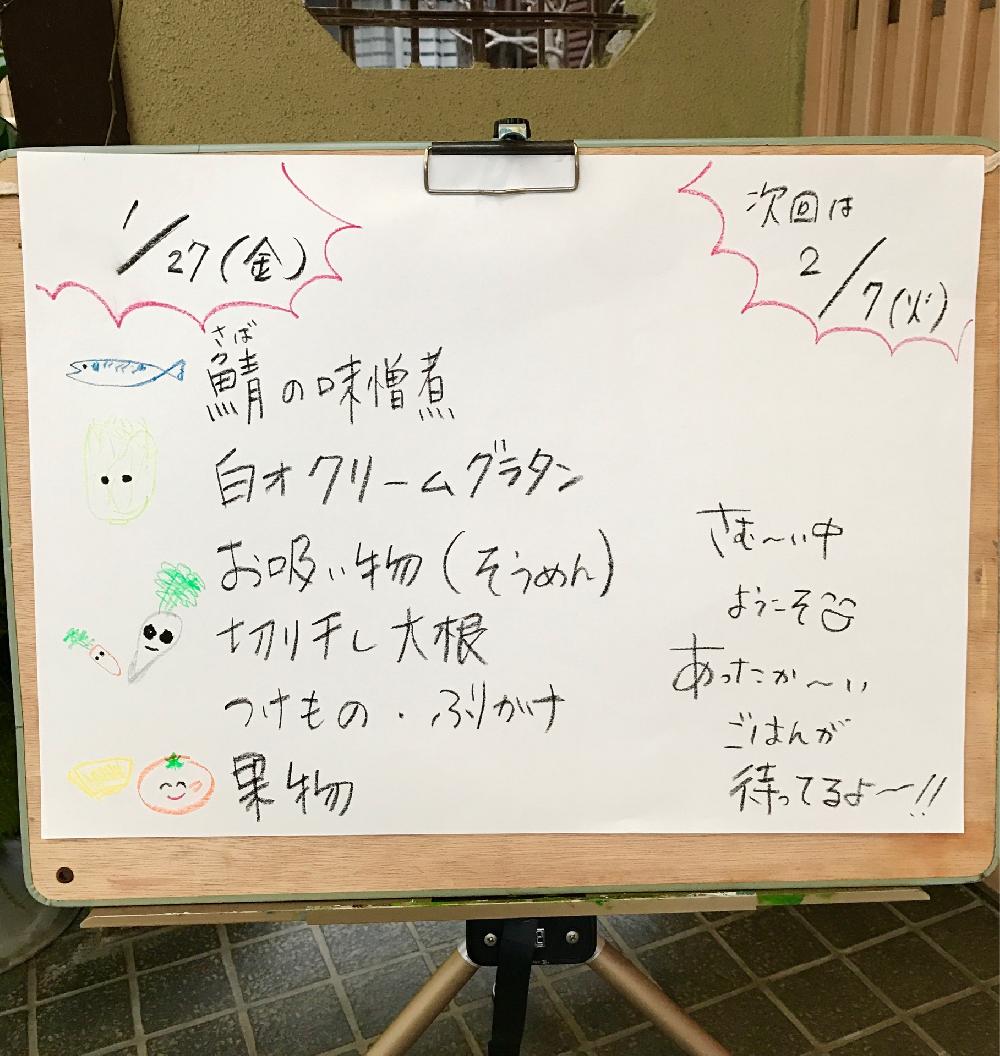 1/27(金)
次回は
2/7(火)
さば
鯖の味噌煮
白才クリームグラタン
お吸い物(そうめん)
切り干し大根
つけもの・ふりかけ
果物
さむ〜い中
ようこそ
あったか〜い
ごはんが
待ってるよ〜!!